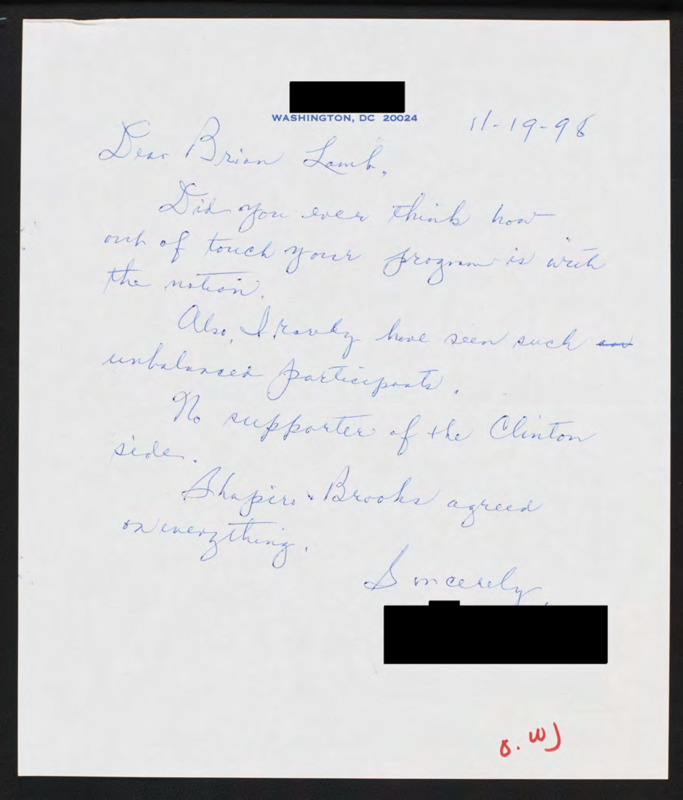 WASHINGTON, DC 20024
11-19-98
Dear Brian Lamb,
Did you ever think how
out of touch your program is with
the nation.
Also, I rarely have seen such an
unbalanced participants.
No supporter of the Clinton
side.
Shapiro & Brooks agreed
on everything.
Sincerely,
o. WJ